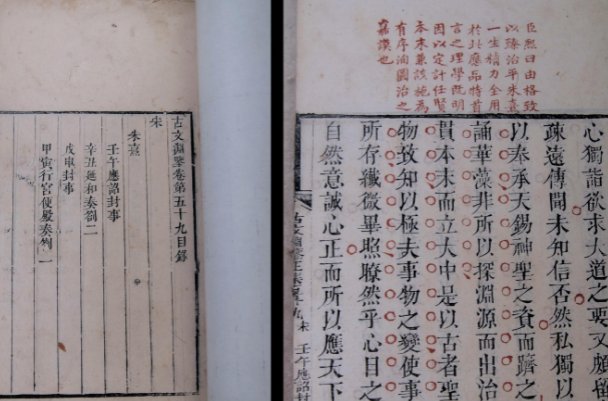 臣熙曰由格致
以臻治平朱熹
一生精力全用
於此應詔特首
言之理學既明
因以定計任賢
本末兼該施為
有序洵圖治之
嘉謨也
心獨詣欲求大道之要又頗留
疎遠傳聞未知信否然私獨以
以奉承天錫神聖之資而躋之
誦華藻非所以探淵源而出治
貫本末而立大中是以古者聖
物致知以極夫事物之變使事
所存纖微畢照瞭然乎心目之
自然意誠心正而所以應天下
宋 壬午應詔封
古文淵鑒卷第五十九目錄
宋
朱熹
壬午應詔封事
辛丑延和奏劄二
戊申封事
甲寅行宮便殿奏劄一